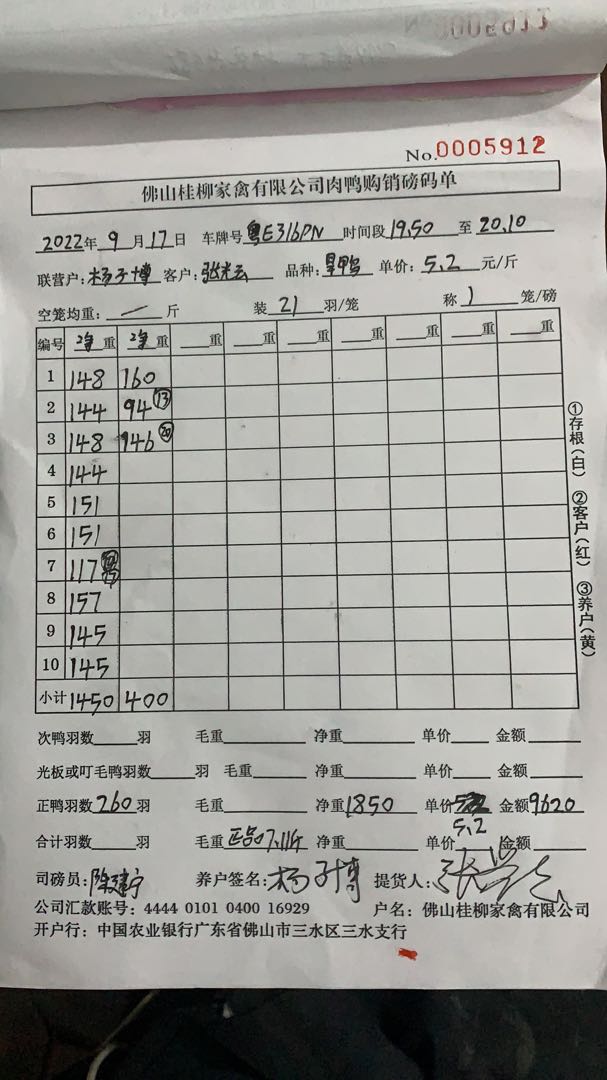 No.0005912
佛山桂柳家禽有限公司肉鸭购销磅码单
2022年 9 月 17 日 车牌号 粤E316PN 时间段 19.50 至 20.10
联营户: 杨子博 客户: 张光云 品种: 单价: 5.2 元/斤
空笼均重: — 斤 装 21 羽/笼 称 1 笼/磅
编号 净重 净重 重 重 重 重 重 重
1 148 160
2 144 94 ⑬
3 148 146 ⑳
4 144
5 151
6 151
7 117
8 157
9 145
10 145
小计 1450 400
①存根(白) ②客户(红) ③养户(黄)
次鸭羽数 羽 毛重 净重 单价 金额
光板或叮毛鸭羽数 羽 毛重 净重 单价 金额
正鸭羽数 260 羽 毛重 净重 1850 单价 5.2 金额 9620
合计羽数 羽 毛重 正品7.11斤 净重 单价 金额
司磅员: 陈建宁 养户签名: 杨子博 提货人:
公司汇款账号: 4444 0101 0400 16929 户名: 佛山桂柳家禽有限公司
开户行: 中国农业银行广东省佛山市三水区三水支行